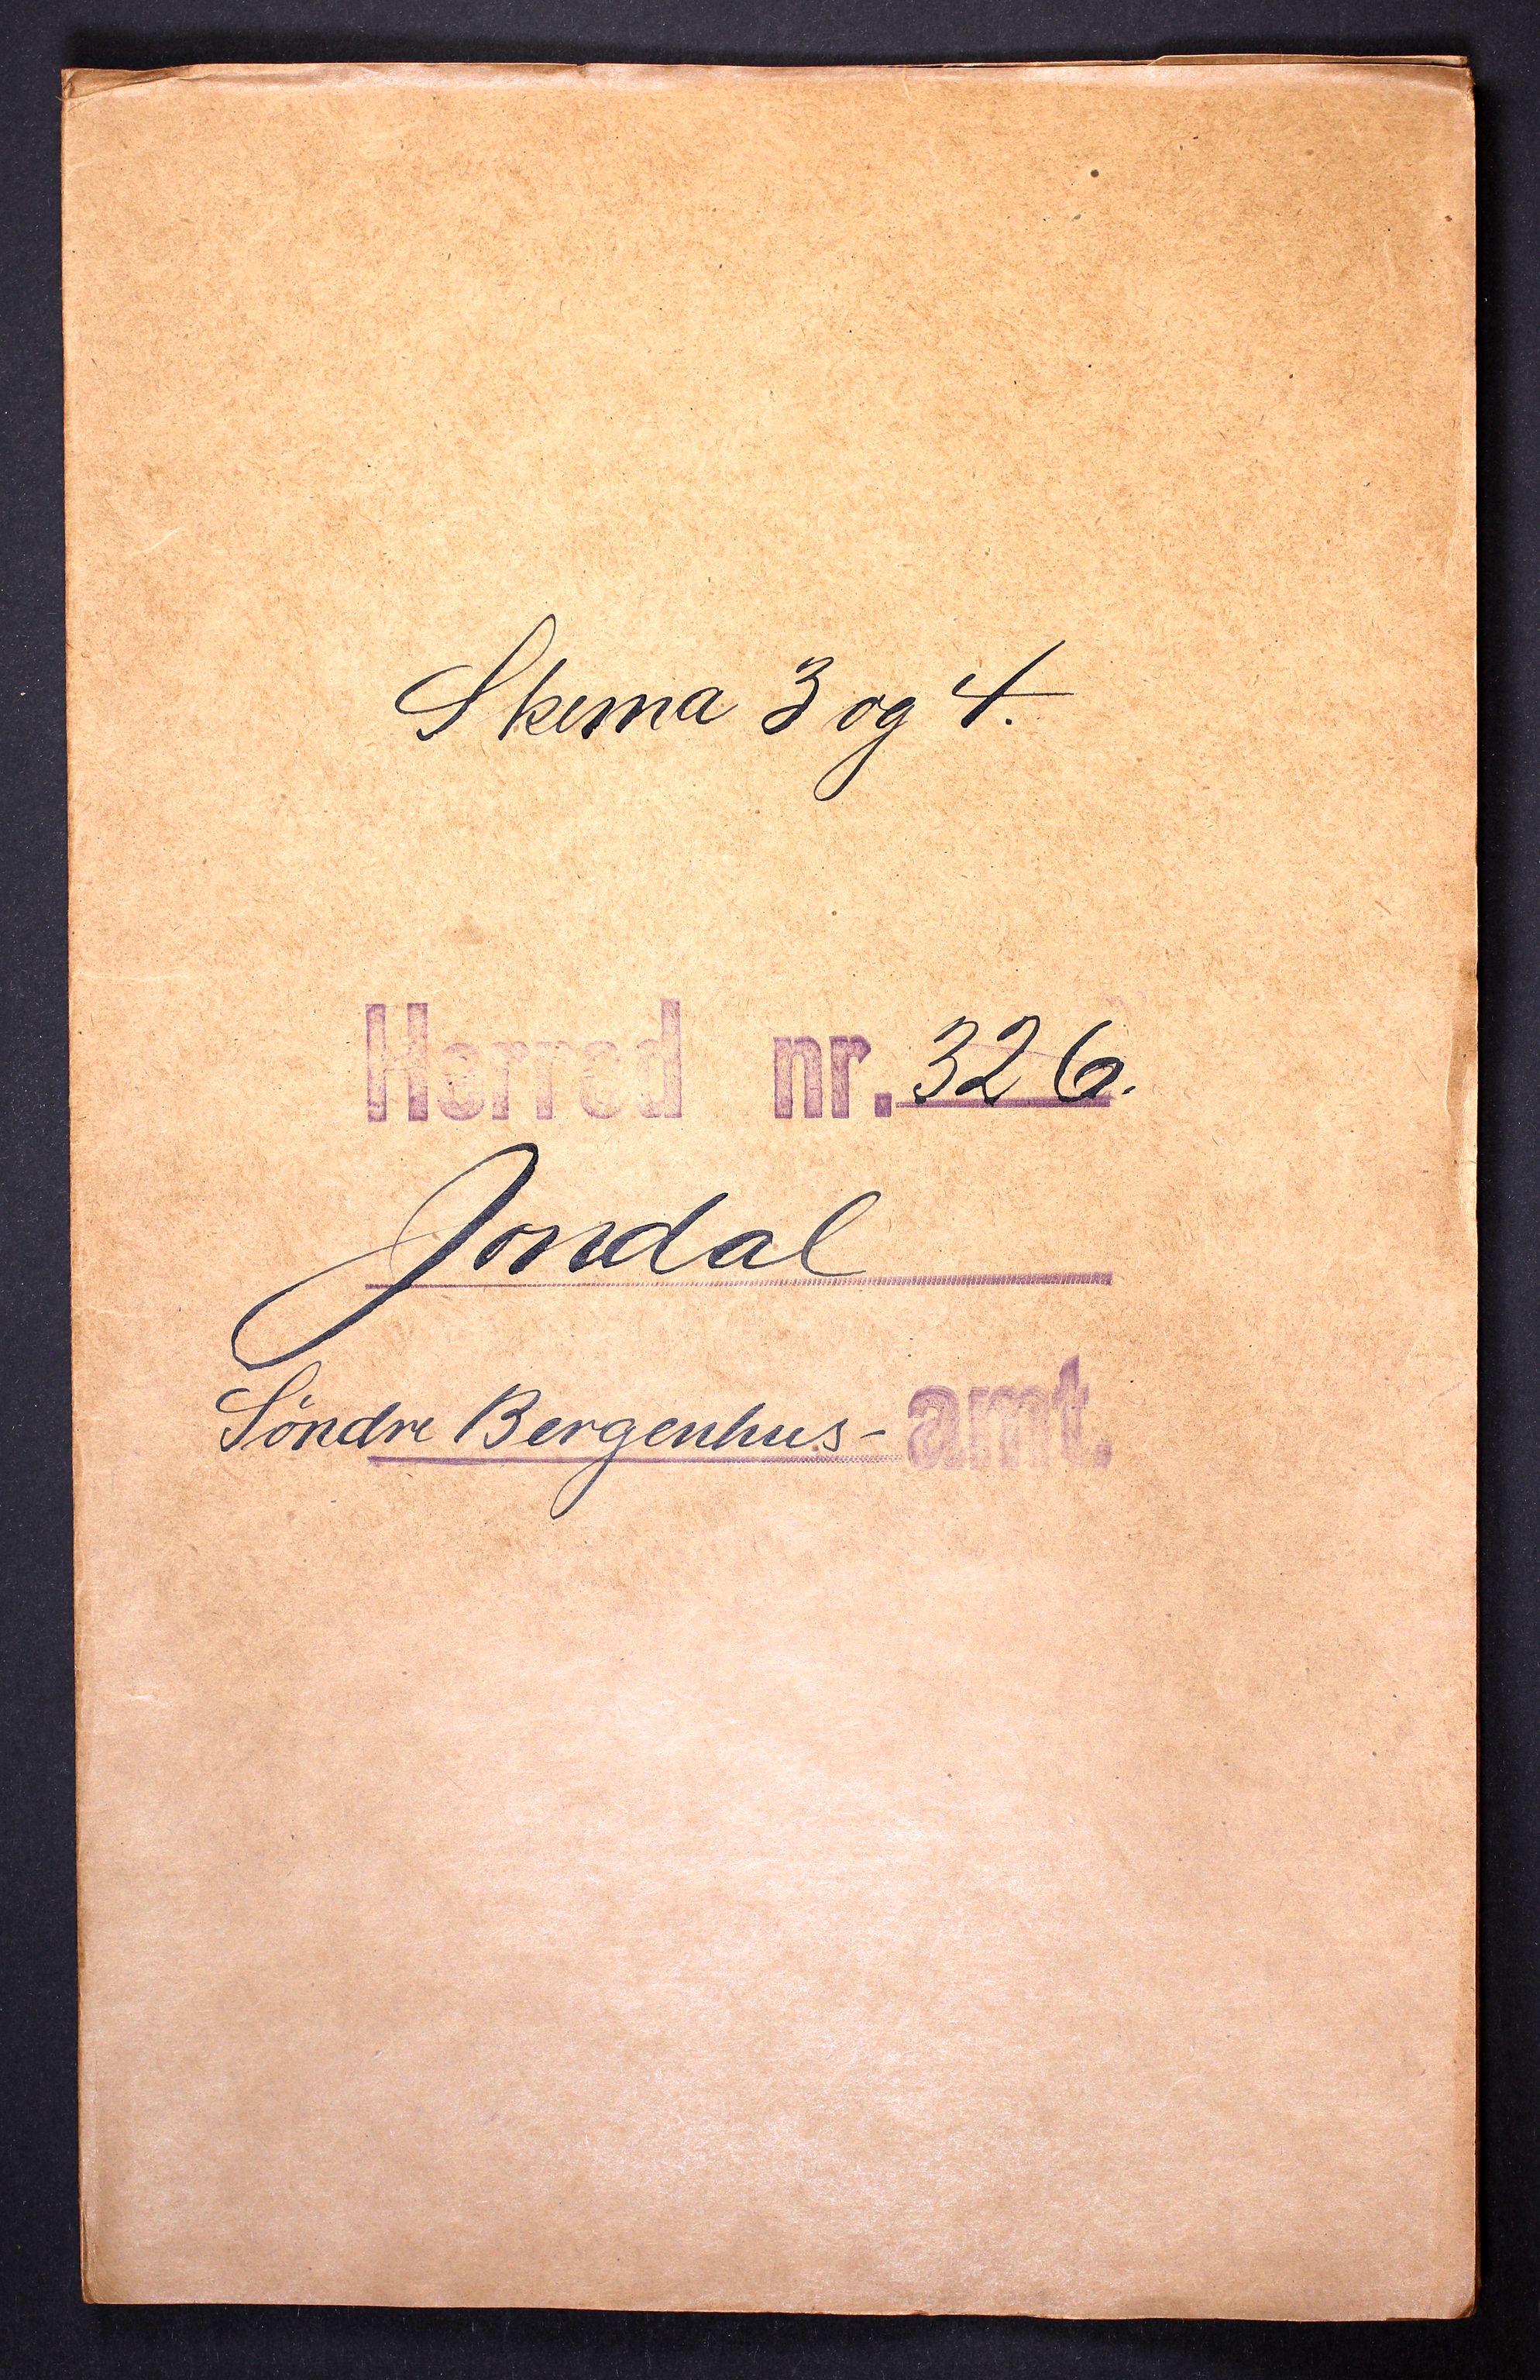 Skema 3 og 4.
Herred nr. 326.
Jondal
Söndre Bergenhus-amt.